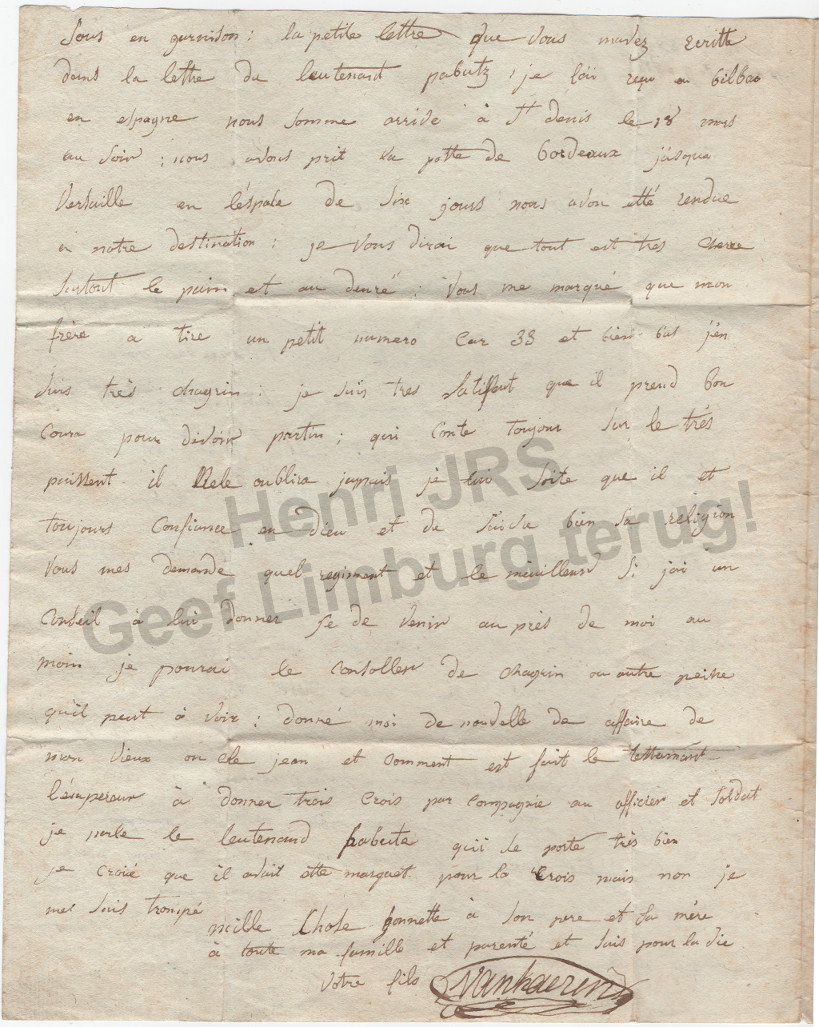 sous en garnison : la petite lettre que vous mavez Ecritte
dans la lettre du leutenant pabutz ; je lai reçu a bilbao
en espagne nous somme arrivé à St denis le 18 mars
au soir ; nous avons prit la potte de Bordeaux jusqua
Versaille en l'éspace de six jours nous avon etté rendue
a notre destination : je vous dirai que tout est tres cherre
surtout le pain et au denré : vous me marqué que mon
frère a tire un petit numero car 38 et bien bas j'en
suis très chagrin : je suis tres satifait que il prend bon
coura pour devoir partir ; qui conte toujour sur le trés
puissent il oublira jamais je lui soite que il et
toujours confiance en Dieu et de suivre bien sa religion
Vous mes demande quel regiment et le meuilleurd si jai un
Conseil à lui donner se de venir au près de moi au
moin je pourai le consoller de chagrin ou autre peine
qu'il peut à voir : donné moi de nouvelle de affaire de
mon vieux on cle jean et comment est fait le testtamant
l'émpereur à donner trois Crois par compagnie au officier et soldat
je parle le leutenand pabuta qui se porte très bien
je croié que il avait otte marquet pour la Crois mais non je
me suis trompé
mille chose honnette à son pere et sa mère
à toute ma famille et parenté et suis pour la vie
Votre fils Vanhaeren
Henri JRS
Geef Limburg terug!